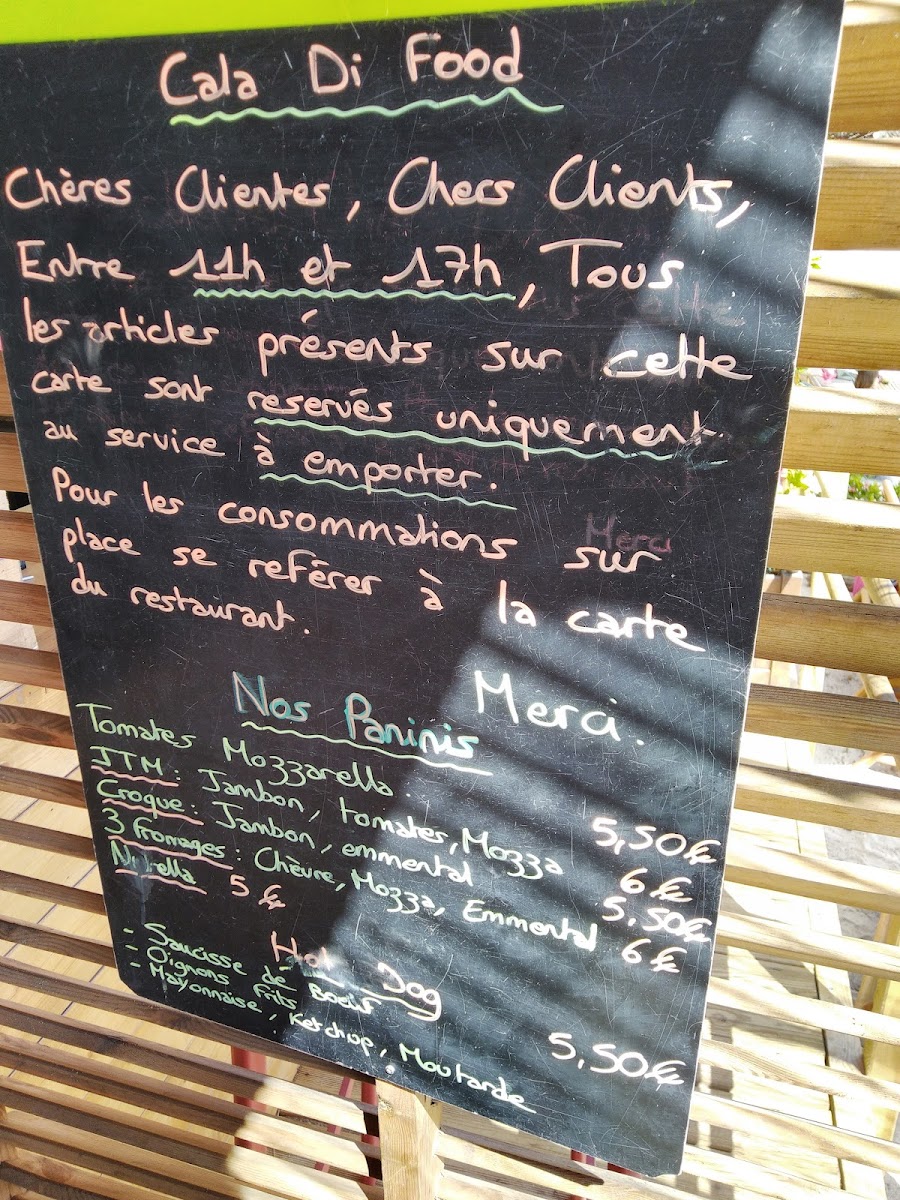 Cala Di Food
Chères Clientes, Chers Clients,
Entre 11h et 17h, Tous
les articles présents sur cette
carte sont reservés uniquement
au service à emporter.
Pour les consommations sur
place se reférer à la carte
du restaurant.
Merci.
Merci
Nos Paninis
Tomates Mozzarella 5,50€
JTM: Jambon, tomates, Mozza 6€
Croque: Jambon, emmental 5,50€
3 fromages: Chèvre, Mozza, Emmental 6€
Nutella 5€
Hot Dog
- Saucisse de Boeuf
- Oignons Frits 5,50€
- Mayonnaise, Ketchup, Moutarde